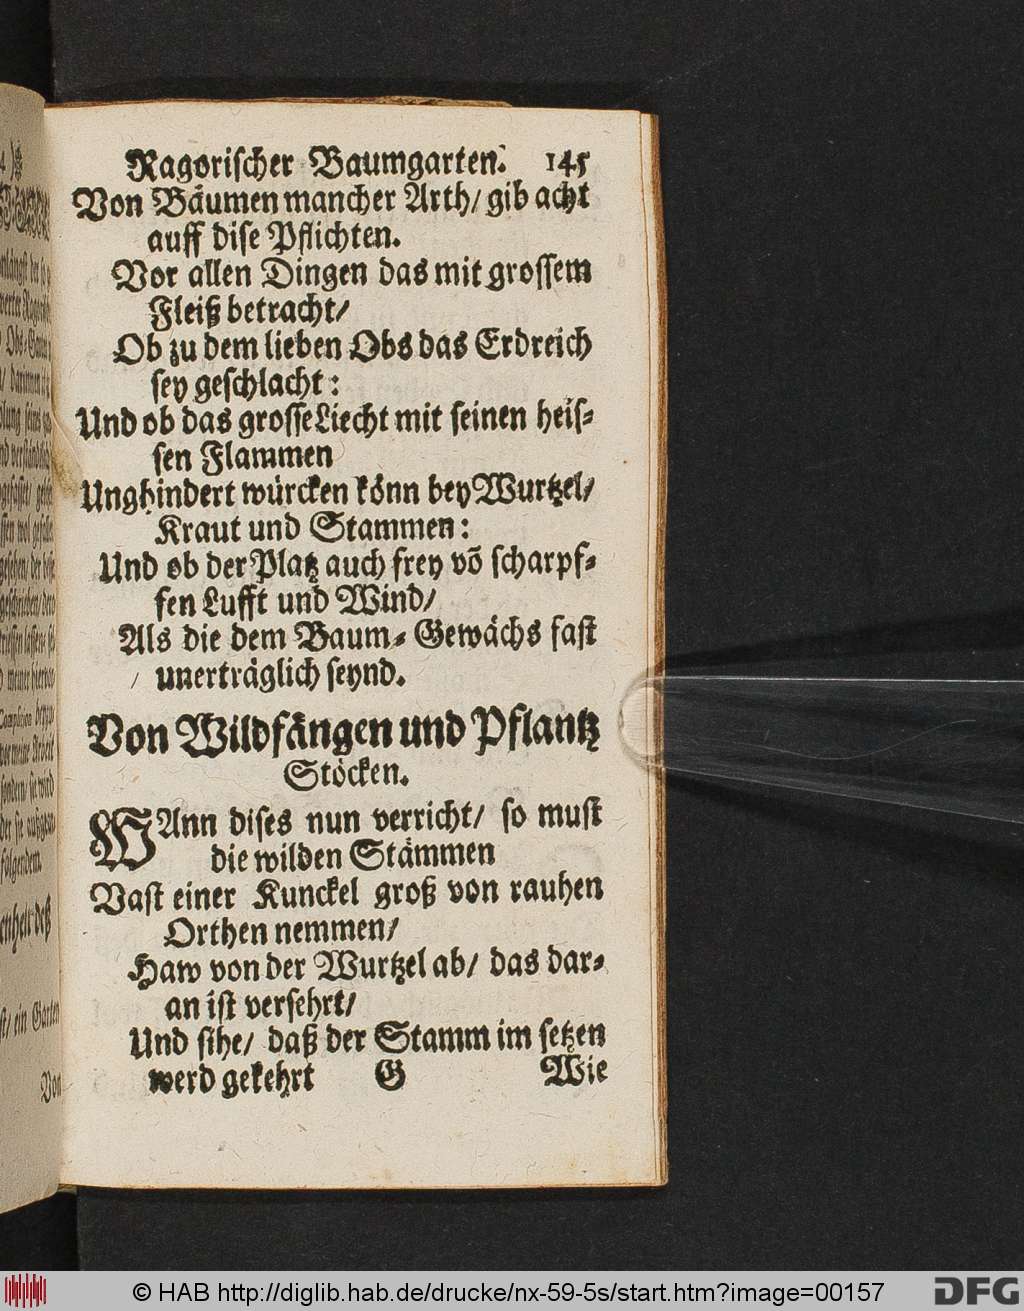 Ragorischer Baumgarten. 145
Von Bäumen mancher Arth/ gib acht
auff dise Pflichten.
Vor allen Dingen das mit grossem
Fleiß betracht/
Ob zu dem lieben Obs das Erdreich
sey geschlacht:
Und ob das grosse Liecht mit seinen heis-
sen Flammen
Unghindert würcken könn bey Wurtzel/
Kraut und Stammen:
Und ob der Platz auch frey võ scharpf-
fen Lufft und Wind/
Als die dem Baum-Gewächs fast
unerträglich seynd.
Von Wildfängen und Pflantz
Stöcken.
WAnn dises nun verricht/ so must
die wilden Stämmen
Vast einer Kunckel groß von rauhen
Orthen nemmen/
Haw von der Wurtzel ab/ das dar-
an ist versehrt/
Und sihe/ daß der Stamm im setzen
werd gekehrt G Wie
Von
© HAB http://diglib.hab.de/drucke/nx-59-5s/start.htm?image=00157
DFG